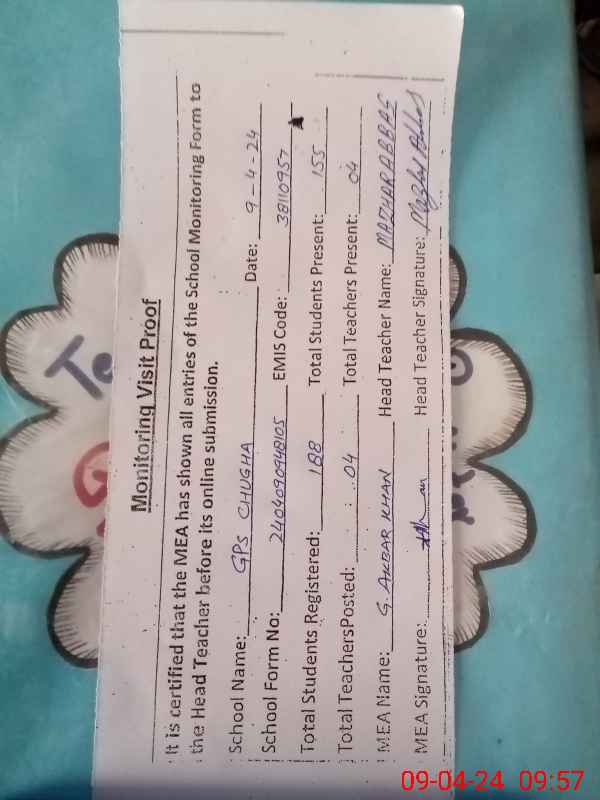 Monitoring Visit Proof
It is certified that the MEA has shown all entries of the School Monitoring Form to
the Head Teacher before its online submission.
School Name: GPS CHUGHA Date: 9-4-24
School Form No: 2404090948105 EMIS Code: 38110957
Total Students Registered: 188 Total Students Present: 155
Total TeachersPosted: 04 Total Teachers Present: 04
MEA Name: G. AKBAR KHAN Head Teacher Name: MAZHAR ABBAS
MEA Signature: Head Teacher Signature: Mazhar Abbas
Te
09-04-24 09:57